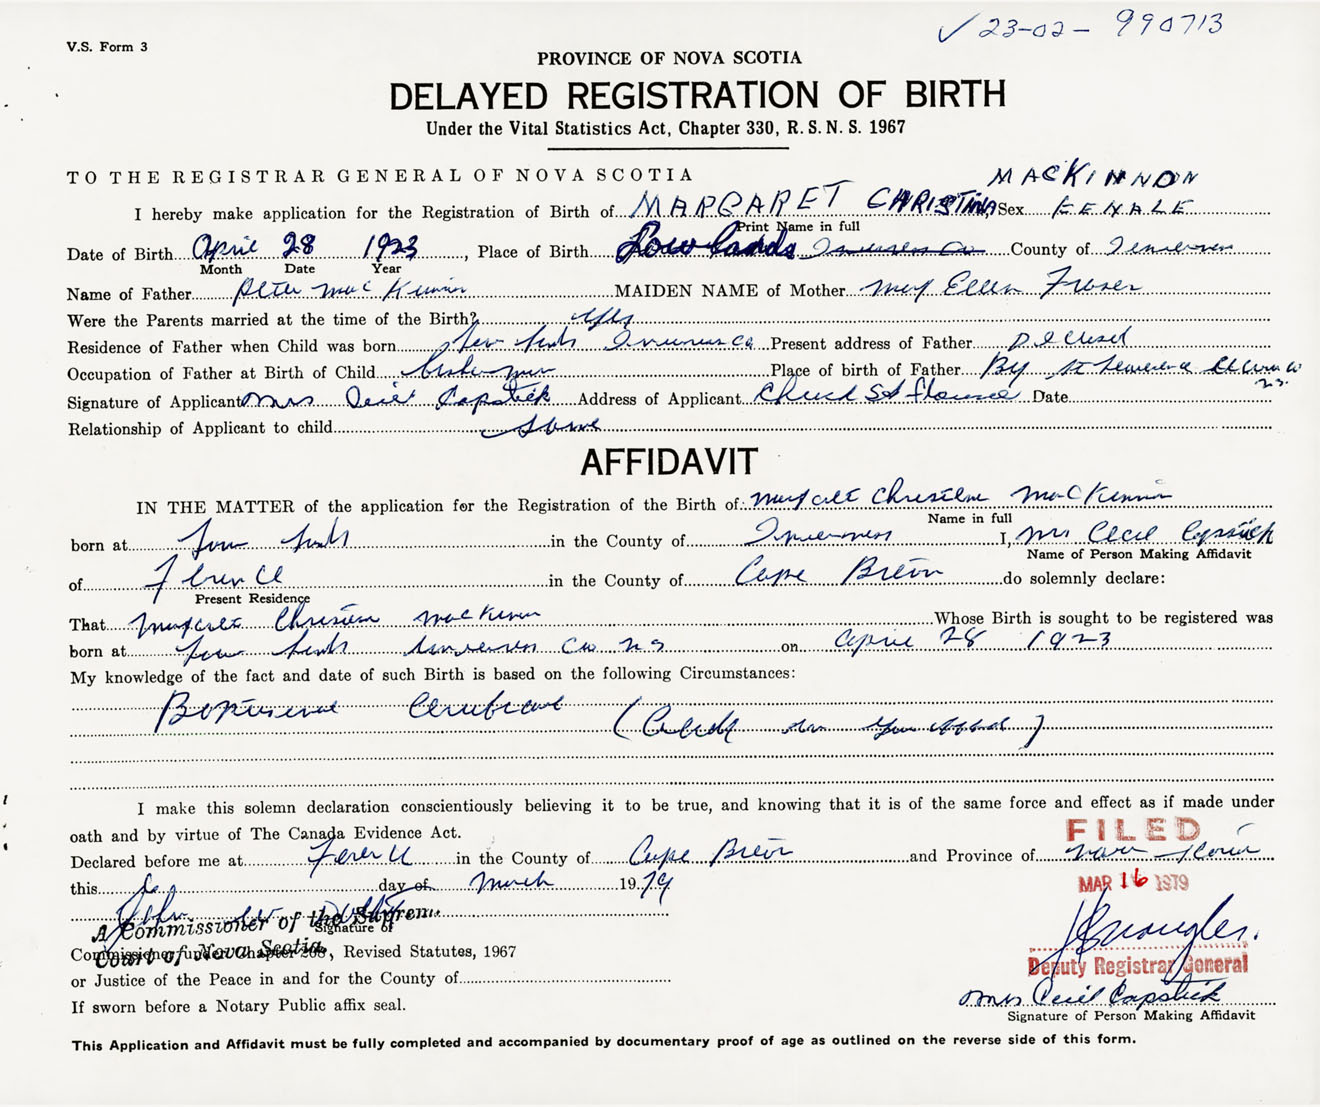 23-02-990713
V.S. Form 3
PROVINCE OF NOVA SCOTIA
DELAYED REGISTRATION OF BIRTH
Under the Vital Statistics Act, Chapter 330, R.S.N.S. 1967
TO THE REGISTRAR GENERAL OF NOVA SCOTIA
MACKINNON
I hereby make application for the Registration of Birth of MARGARET CHRISTINA Sex FEMALE
Print Name in full
Date of Birth April 28 1923, Place of Birth Inverness Co County of Inverness
Month Date Year
Name of Father Peter MacKinnon MAIDEN NAME of Mother Mary Ellen Fraser
Were the Parents married at the time of the Birth? yes
Residence of Father when Child was born Inverness Co Present address of Father
Occupation of Father at Birth of Child Place of birth of Father Bay St Lawrence
N.S.
Signature of Applicant Mrs Cecil Capstick Address of Applicant Date
Relationship of Applicant to child Same
AFFIDAVIT
IN THE MATTER of the application for the Registration of the Birth of: Margaret Christine MacKinnon
Name in full
born at in the County of Inverness I, Mrs Cecil Capstick
Name of Person Making Affidavit
of Florence in the County of Cape Breton do solemnly declare:
Present Residence
That Margaret Christine MacKinnon Whose Birth is sought to be registered was
born at Inverness Co N S on April 28 1923
My knowledge of the fact and date of such Birth is based on the following Circumstances:
I make this solemn declaration conscientiously believing it to be true, and knowing that it is of the same force and effect as if made under
oath and by virtue of The Canada Evidence Act.
FILED
Declared before me at Florence in the County of Cape Breton and Province of Nova Scotia
this day of March 1979
MAR 16 1979
A Commissioner of the Supreme
Signature of
Court of Nova Scotia
Commissioner under Chapter, Revised Statutes, 1967
Deputy Registrar General
or Justice of the Peace in and for the County of
Mrs Cecil Capstick
If sworn before a Notary Public affix seal.
Signature of Person Making Affidavit
This Application and Affidavit must be fully completed and accompanied by documentary proof of age as outlined on the reverse side of this form.